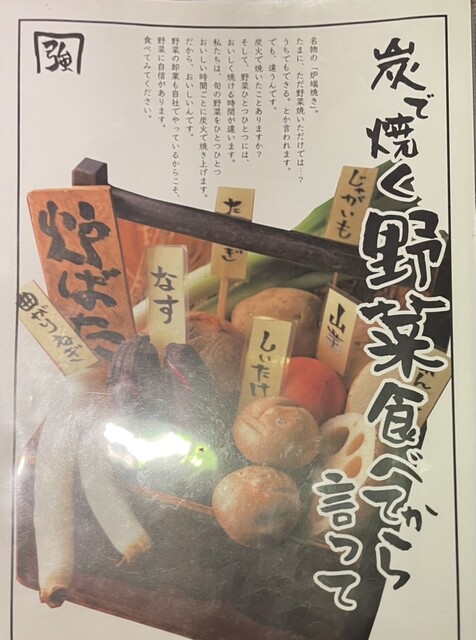 炭で焼く野菜食べてから
言って
名物の「炉端焼き」。
たまに、ただ野菜焼いただけでは…？
うちでもできる。とか言われます。
でも、違うんです。
炭火で焼いたことありますか？
そして、野菜ひとつひとつには、
おいしく焼ける時間が違います。
私たちは、旬の野菜をひとつひとつ
おいしい時間ごとに炭火で焼き上げます。
だから、おいしいんです。
野菜の卸業も自社でやっているからこそ、
野菜に自信があります。
食べてみてください。
強
じゃがいも
た
ぎ
なす
炉ばた
山芋
しいたけ
曲がりねぎ
ん